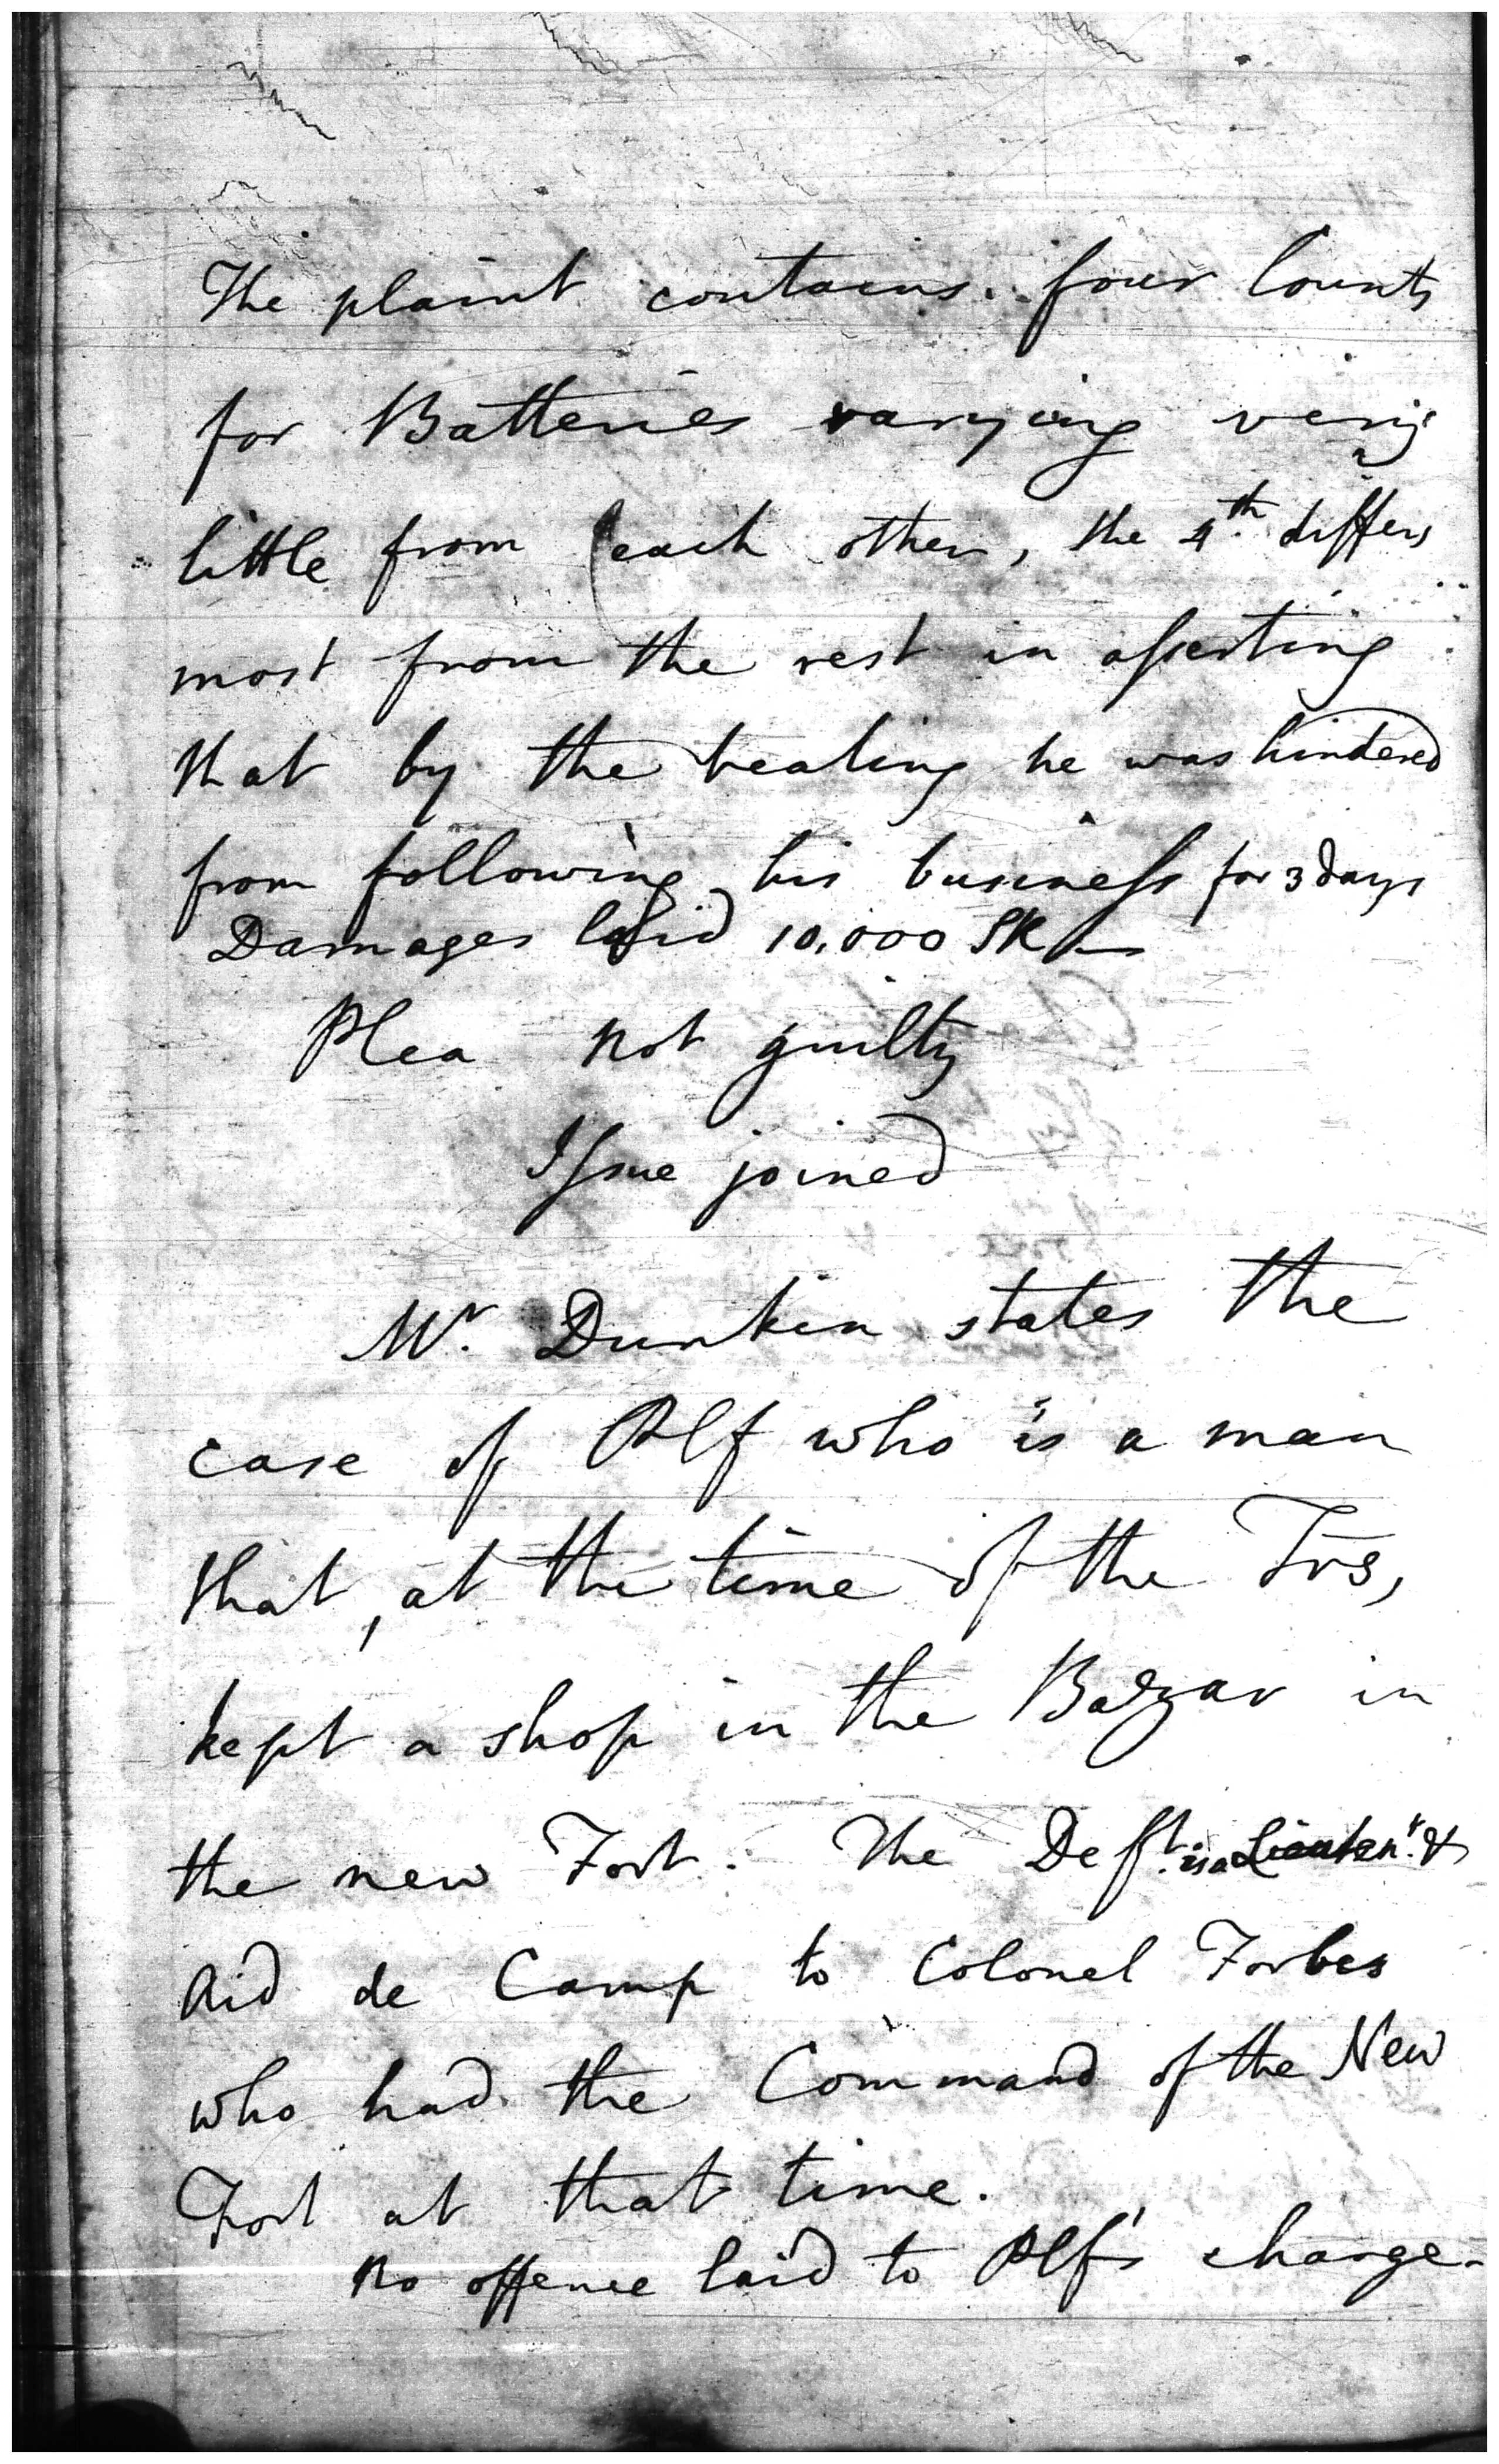 The plaint contains four Counts
for Batteries varying very
little from each other, the 4th differs
most from the rest in asserting
that by the beating he was hindered
from following his business for 3 days
Damages laid 10,000 SRs
Plea not guilty
Issue joined
Mr. Dunkin states the
case of Plf who is a man
that, at the time of the Trs,
kept a shop in the Bazar in
the new Fort. The Deft. is a Lieutent. &
Aid de Camp to Colonel Forbes
who had the Command of the New
Fort at that time.
No offence laid to Plf's charge.